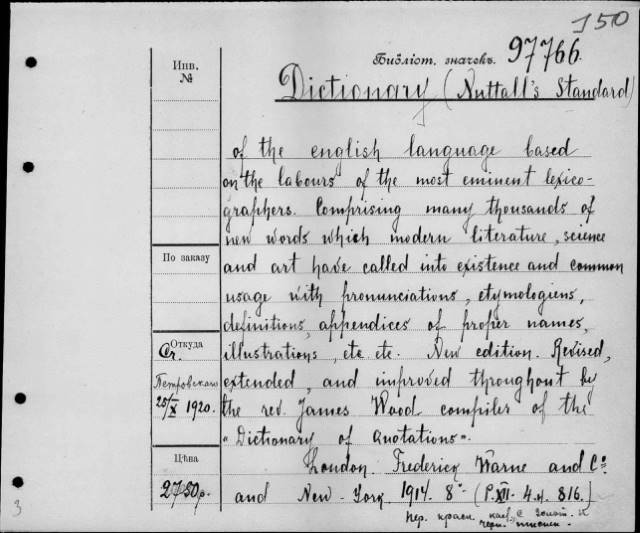 150
Библіот. значекъ. 97766.
Dictionary (Nuttall's Standard)
of the english language based
on the labours of the most eminent lexico-
graphers. Comprising many thousands of
new words which modern literature, science
and art have called into existence and common
usage with pronunciations, etymologiens,
definitions, appendices of proper names,
illustrations, etc. etc. New edition. Revised,
extended, and improved throughout by
the rev. James Wood compiler of the
"Dictionary of Quotations".
London. Frederick Warne and Cº
and New-York. 1914. 8º (P.XII. 4. и 816.)
пер. красн.
Инв.
№
По заказу
Откуда
Петровская
25/X 1920.
Цѣна
2750 р.
3